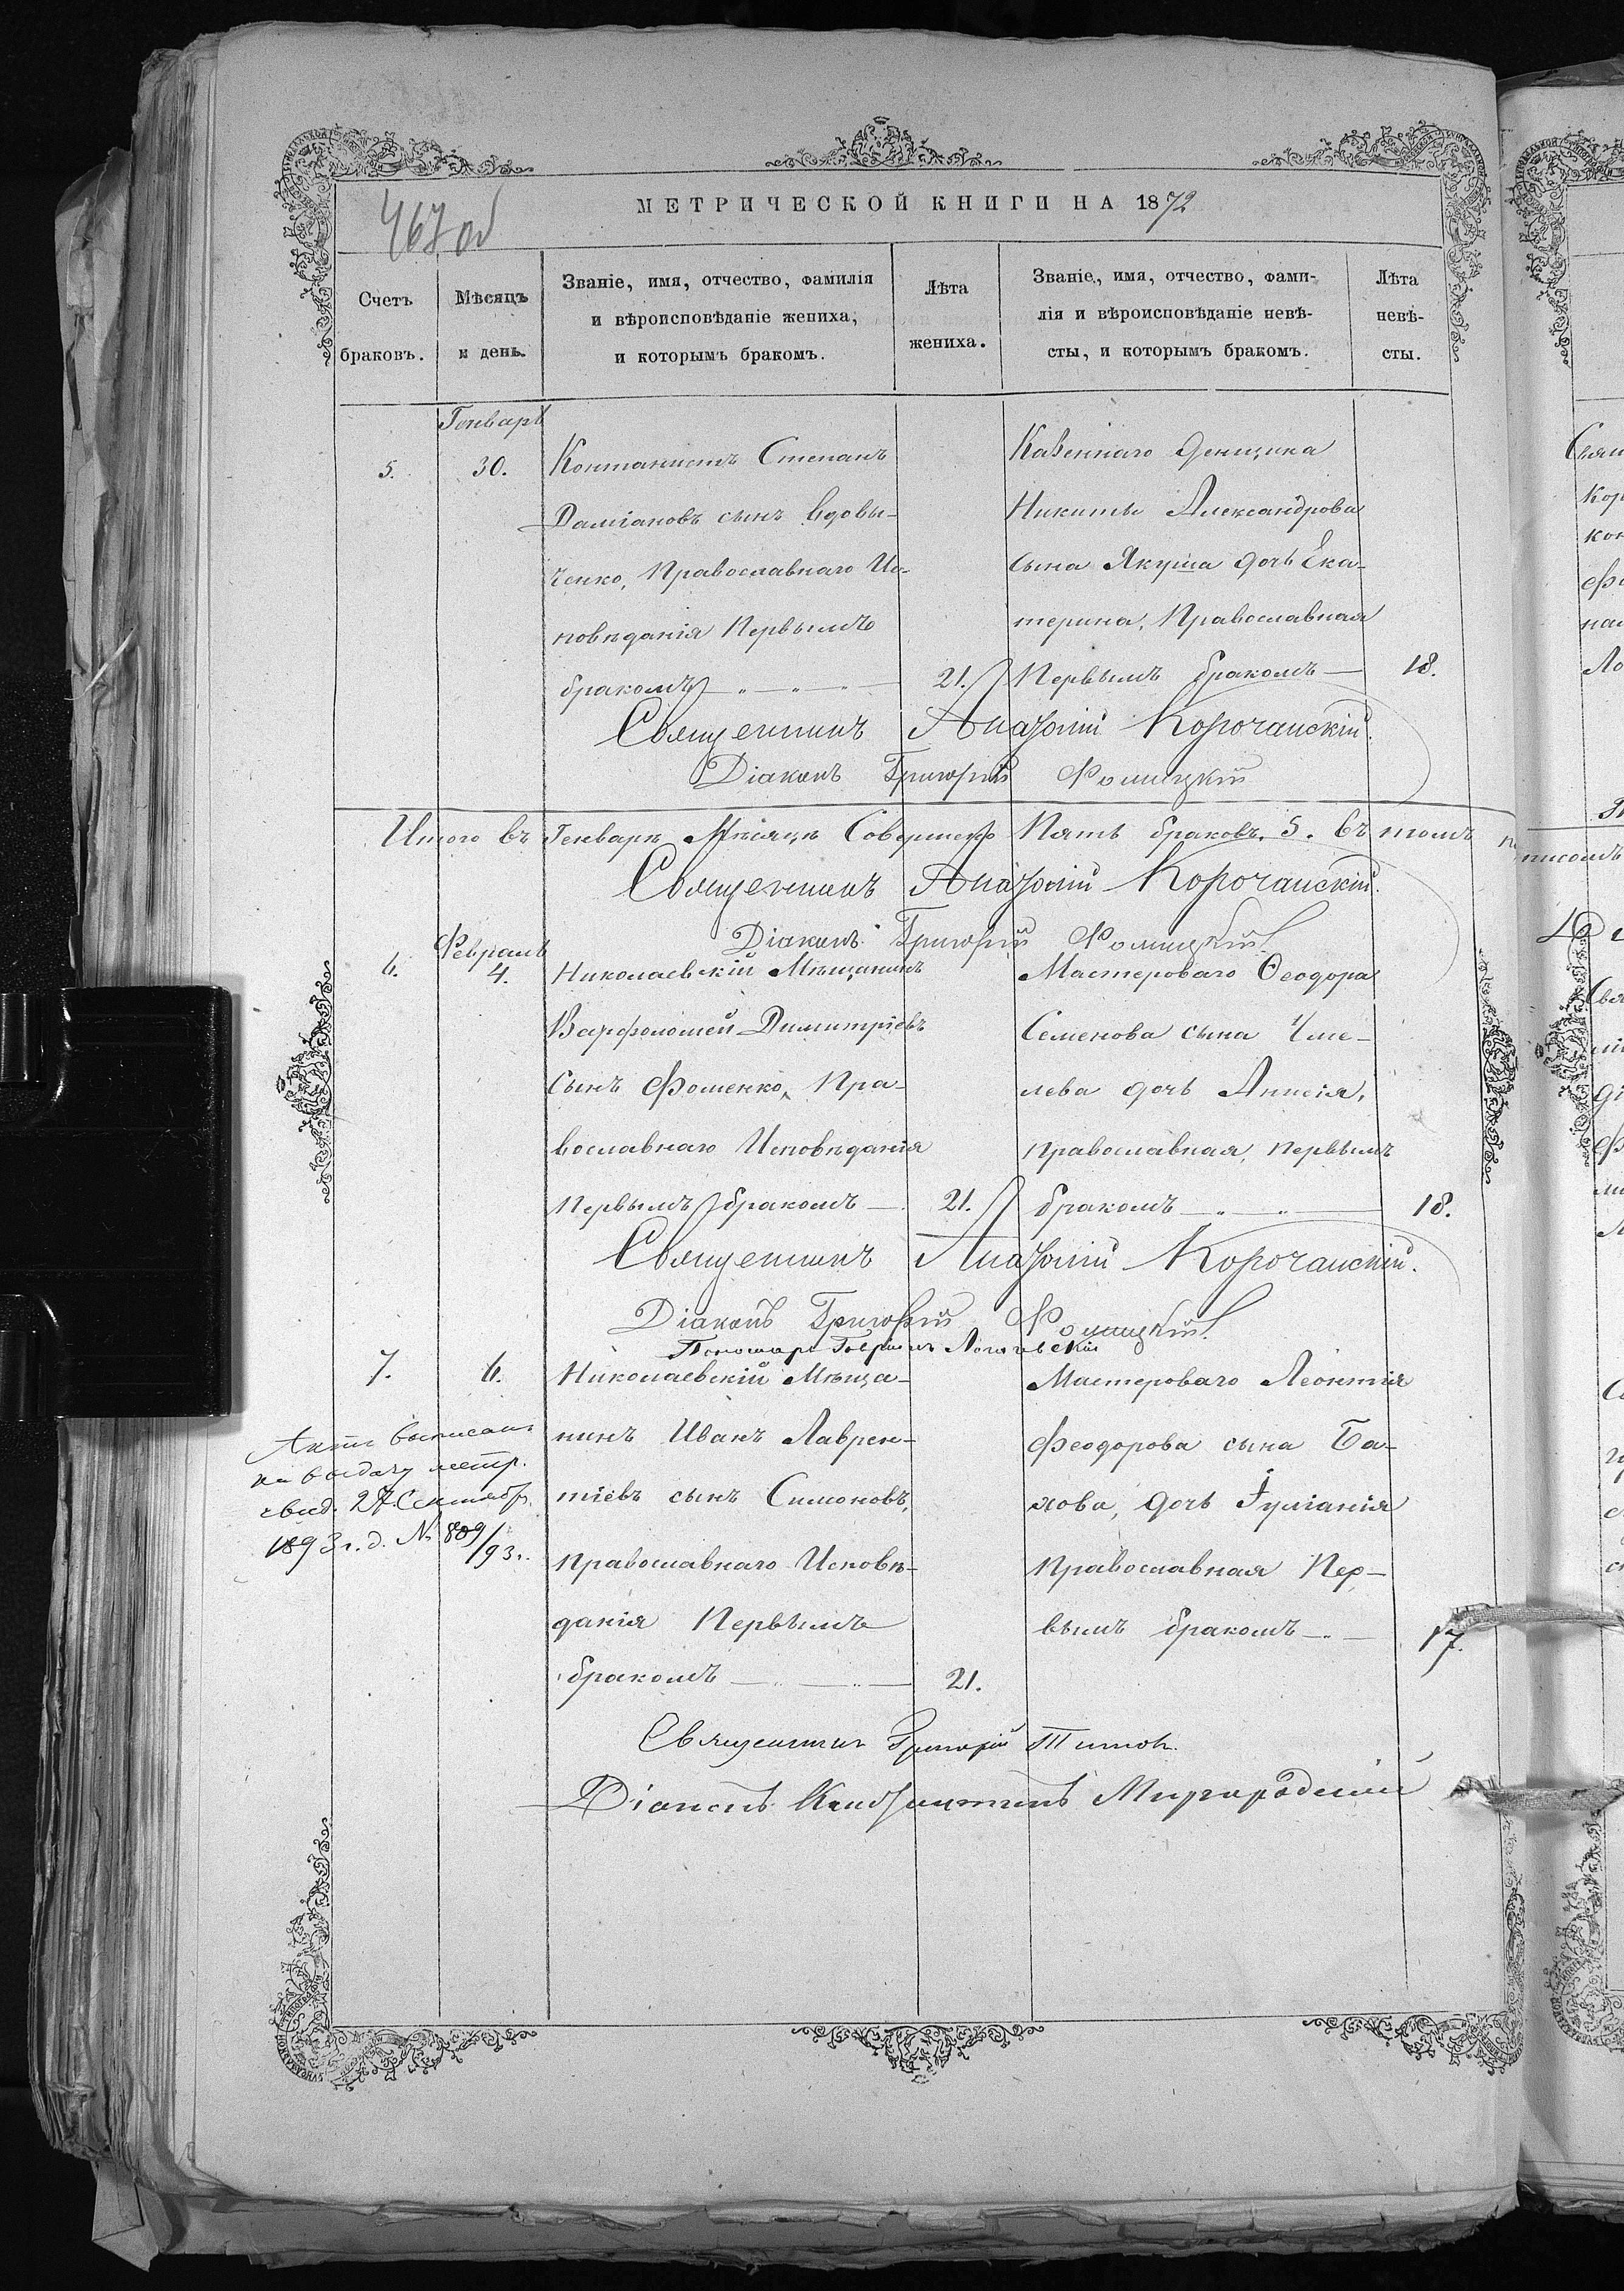 467 об
МЕТРИЧЕСКОЙ КНИГИ НА 1872
Счетъ браковъ.
Мѣсяцъ и день.
Званіе, имя, отчество, фамилія
и вѣроисповѣданіе жениха,
и которымъ бракомъ.
Лѣта
жениха.
Званіе, имя, отчество, фами-
лія и вѣроисповѣданіе невѣ-
сты, и которымъ бракомъ.
Лѣта
невѣ-
сты.
Генварь
5.
30.
Контонистъ Степанъ
Даміановъ сынъ Вдовы-
ченко, Православнаго Ис-
повѣданія Первымъ
бракомъ
21.
Казеннаго Денщика
Никиты Александрова
сына Якуша дочь Ека-
терина, Православная
Первымъ бракомъ
18.
Священникъ Анатолій Корочанскій.
Діаконъ Григорій
Итого въ Генварѣ Мѣсяцѣ Совершено Пять браковъ. 5. Въ томъ
Священникъ Анатолій Корочанскій.
Діаконъ Григорій
Февраль
6.
4.
Николаевскій Мѣщанинъ
Варфоломей Димитріевъ
Сынъ Фоменко, Пра-
вославнаго Исповѣданія
Первымъ бракомъ
21.
Мастероваго Ѳеодора
Семенова сына Чме-
лева дочь Анисія,
Православная, Первымъ
бракомъ
18.
Священникъ Анатолій Корочанскій.
Діаконъ Григорій
Пономарь
7.
6.
Николаевскій Мѣща-
нинъ Иванъ Лаврен-
тіевъ сынъ Симоновъ,
Православнаго Исповѣ-
данія Первымъ
бракомъ
21.
Мастероваго Леонтія
Феодорова сына Ба-
хова, дочь Іуліанія
Православная Пер-
вымъ бракомъ
17.
Актъ выписанъ
на выдачу метр.
свид. 27 Сентябр.
1893 г. д. № 809/93 г.
Священникъ Григорій Титов.
Діаконъ Константинъ Миргородскій